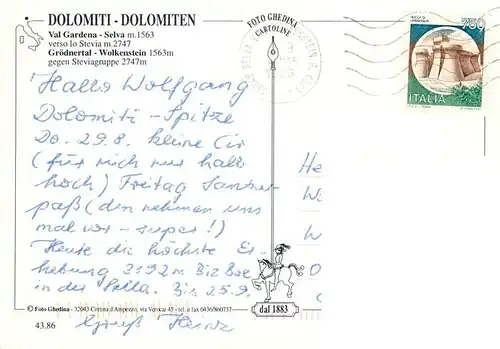 DOLOMITI - DOLOMITEN
Val Gardena - Selva m.1563
verso lo Stevia m.2747
Grödnertal - Wolkenstein 1563m
gegen Steviagruppe 2747m
FOTO GHEDINA
CARTOLINE
750
ITALIA
Hallo Wolfgang
Dolomiti - Spitze
Do. 29.8. kleine Cir
(für mich nur halb
hoch) Freitag
paß (den nehmen uns
mal vor - super!)
Heute die höchste Er-
hebung 3192 m Piz Boe
in der Sella. Bis 25.9.
Gruß Heinz
He
W
W
dal 1883
© Foto Ghedina - 32043 Cortina d'Ampezzo, via Verocai 45 - tel. e fax 0436/860737
43.86